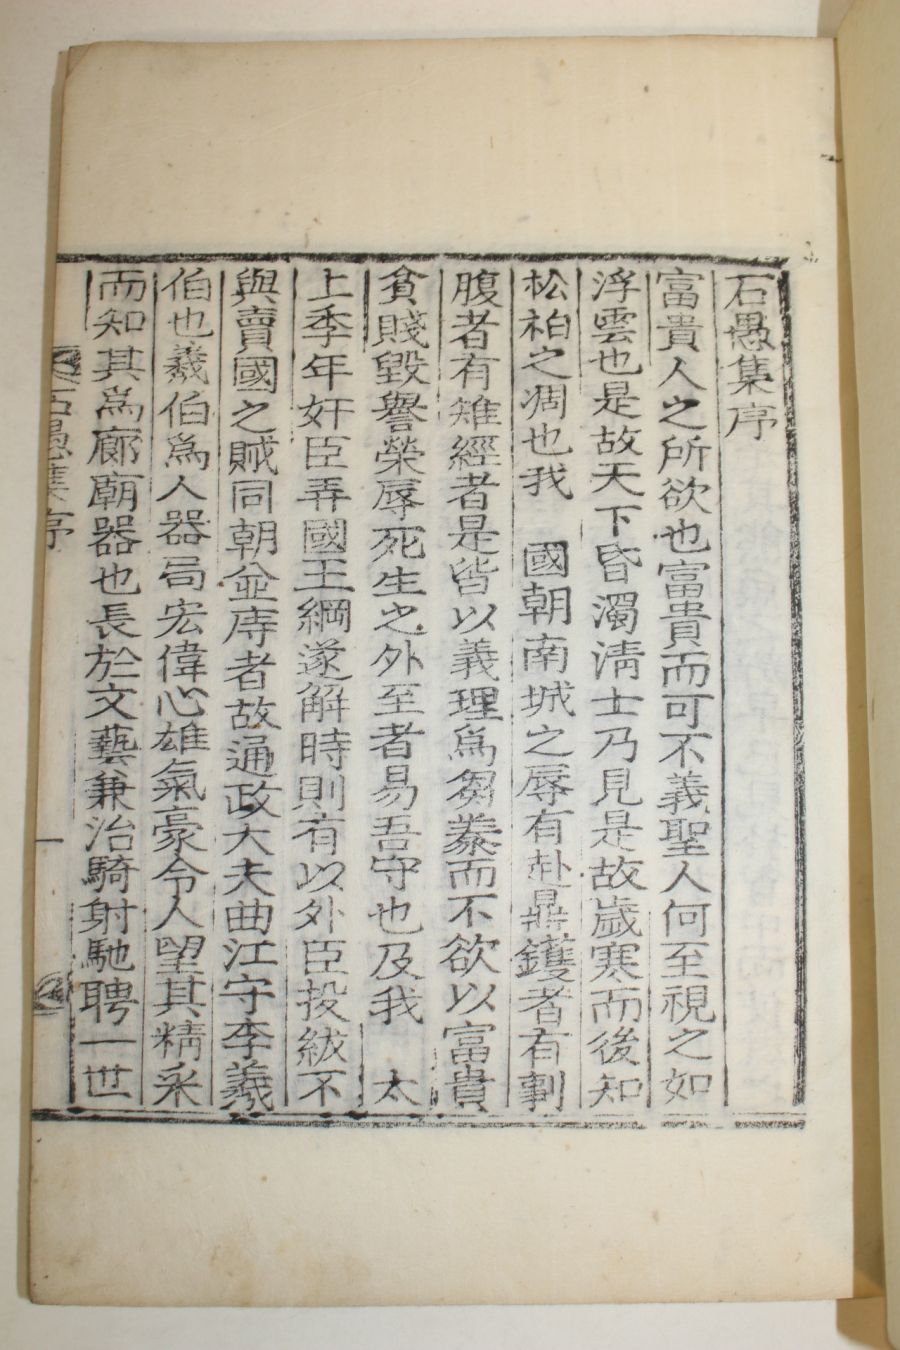 石愚集序
富貴人之所欲也富貴而可不義聖人何至視之如
浮雲也是故天下昏濁淸士乃見是故歲寒而後知
松柏之凋也我 國朝南城之辱有赴鼎鑊者有剚
腹者有雉經者是皆以義理爲芻豢而不欲以富貴
貧賤毀譽榮辱死生之外至者易吾守也及我 太
上季年奸臣弄國王綱遂解時則有以外臣投紱不
與賣國之賊同朝並庤者故通政大夫曲江守李羲
伯也羲伯爲人器局宏偉心雄氣豪令人望其精采
而知其爲廊廟器也長於文藝兼治騎射馳聘一世
石愚集序 一